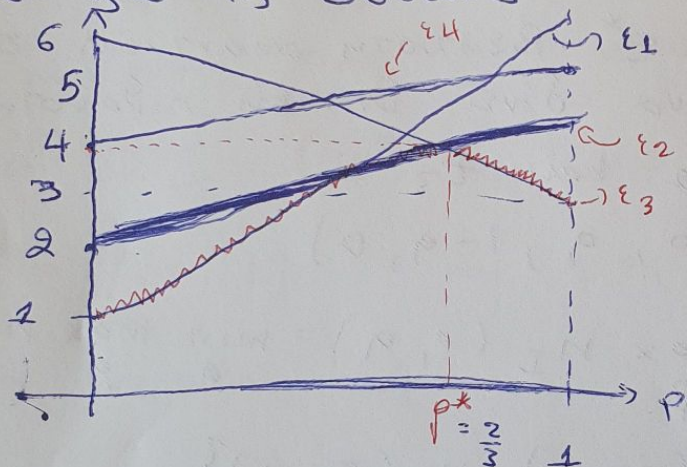 6
5
4
3
2
1
ε4
ε1
ε2
ε3
p
p*
= 2/3
1